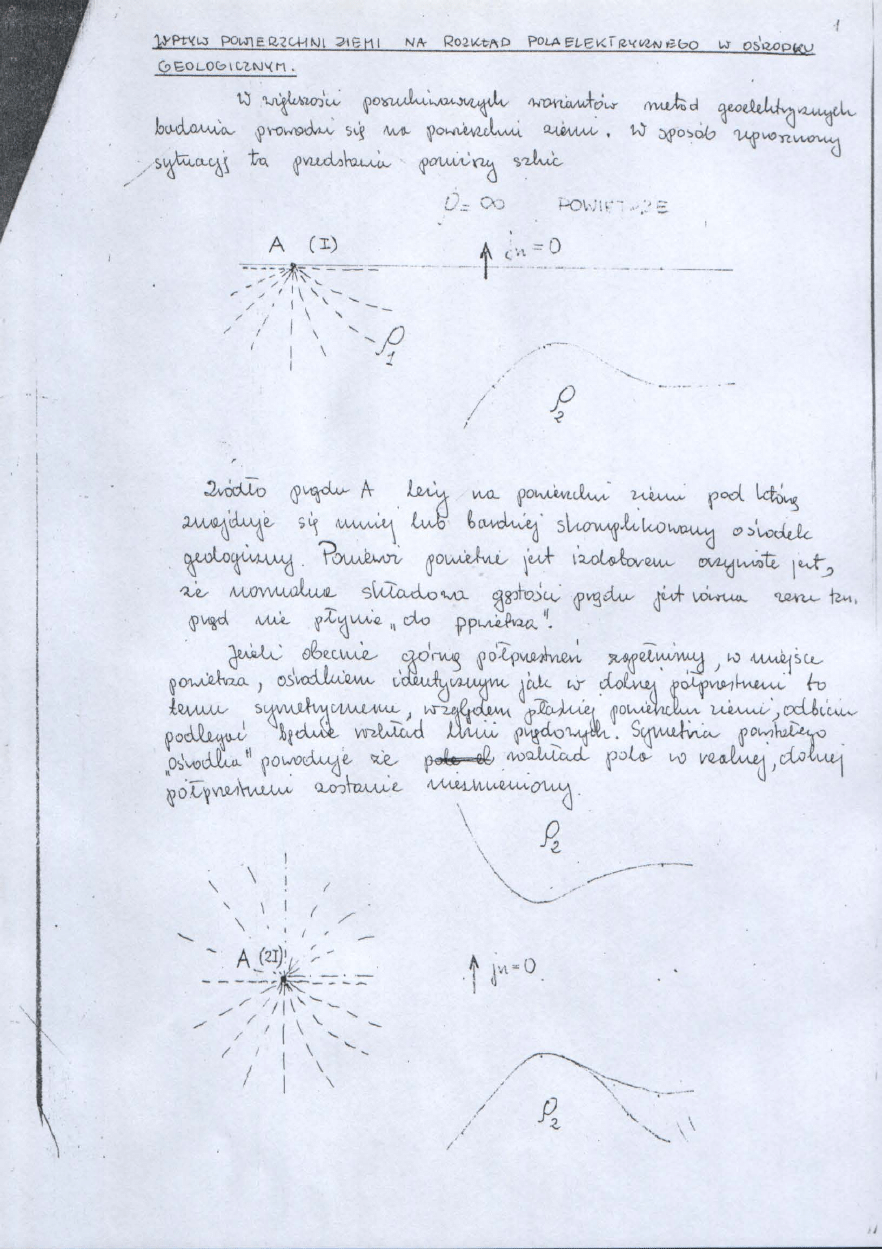 1
WPŁYW POWIERZCHNI ZIEMI NA ROZKŁAD POLA ELEKTRYCZNEGO W OŚRODKU
GEOLOGICZNYM.
W większości poszukiwawczych wariantów metod geoelektrycznych
badania prowadzi się na powierzchni ziemi. W sposób uproszczony
sytuację tą przedstawia powyższy szkic
ρ = ∞ POWIETRZE
A (I) jn = 0
ρ1
ρ2
Źródło prądu A leży na powierzchni ziemi pod którą
znajduje się mniej lub bardziej skomplikowany ośrodek
geologiczny. Ponieważ powietrze jest izolatorem oczywiste jest,
że normalna składowa gęstości prądu jest równa zeru tzn.
prąd nie płynie „do powietrza".
Jeżeli obecnie górną półprzestrzeń zapełnimy, w miejsce
powietrza, ośrodkiem identycznym jak w dolnej półprzestrzeni to
temu symetrycznemu, względem płaskiej powierzchni ziemi, odbiciu
podlegać będzie rozkład linii prądowych. Symetria powstałego
„ośrodka" powoduje że pole el rozkład pola w realnej, dolnej
półprzestrzeni zostanie niezmieniony.
ρ2
A (2I) jn = 0
ρ2